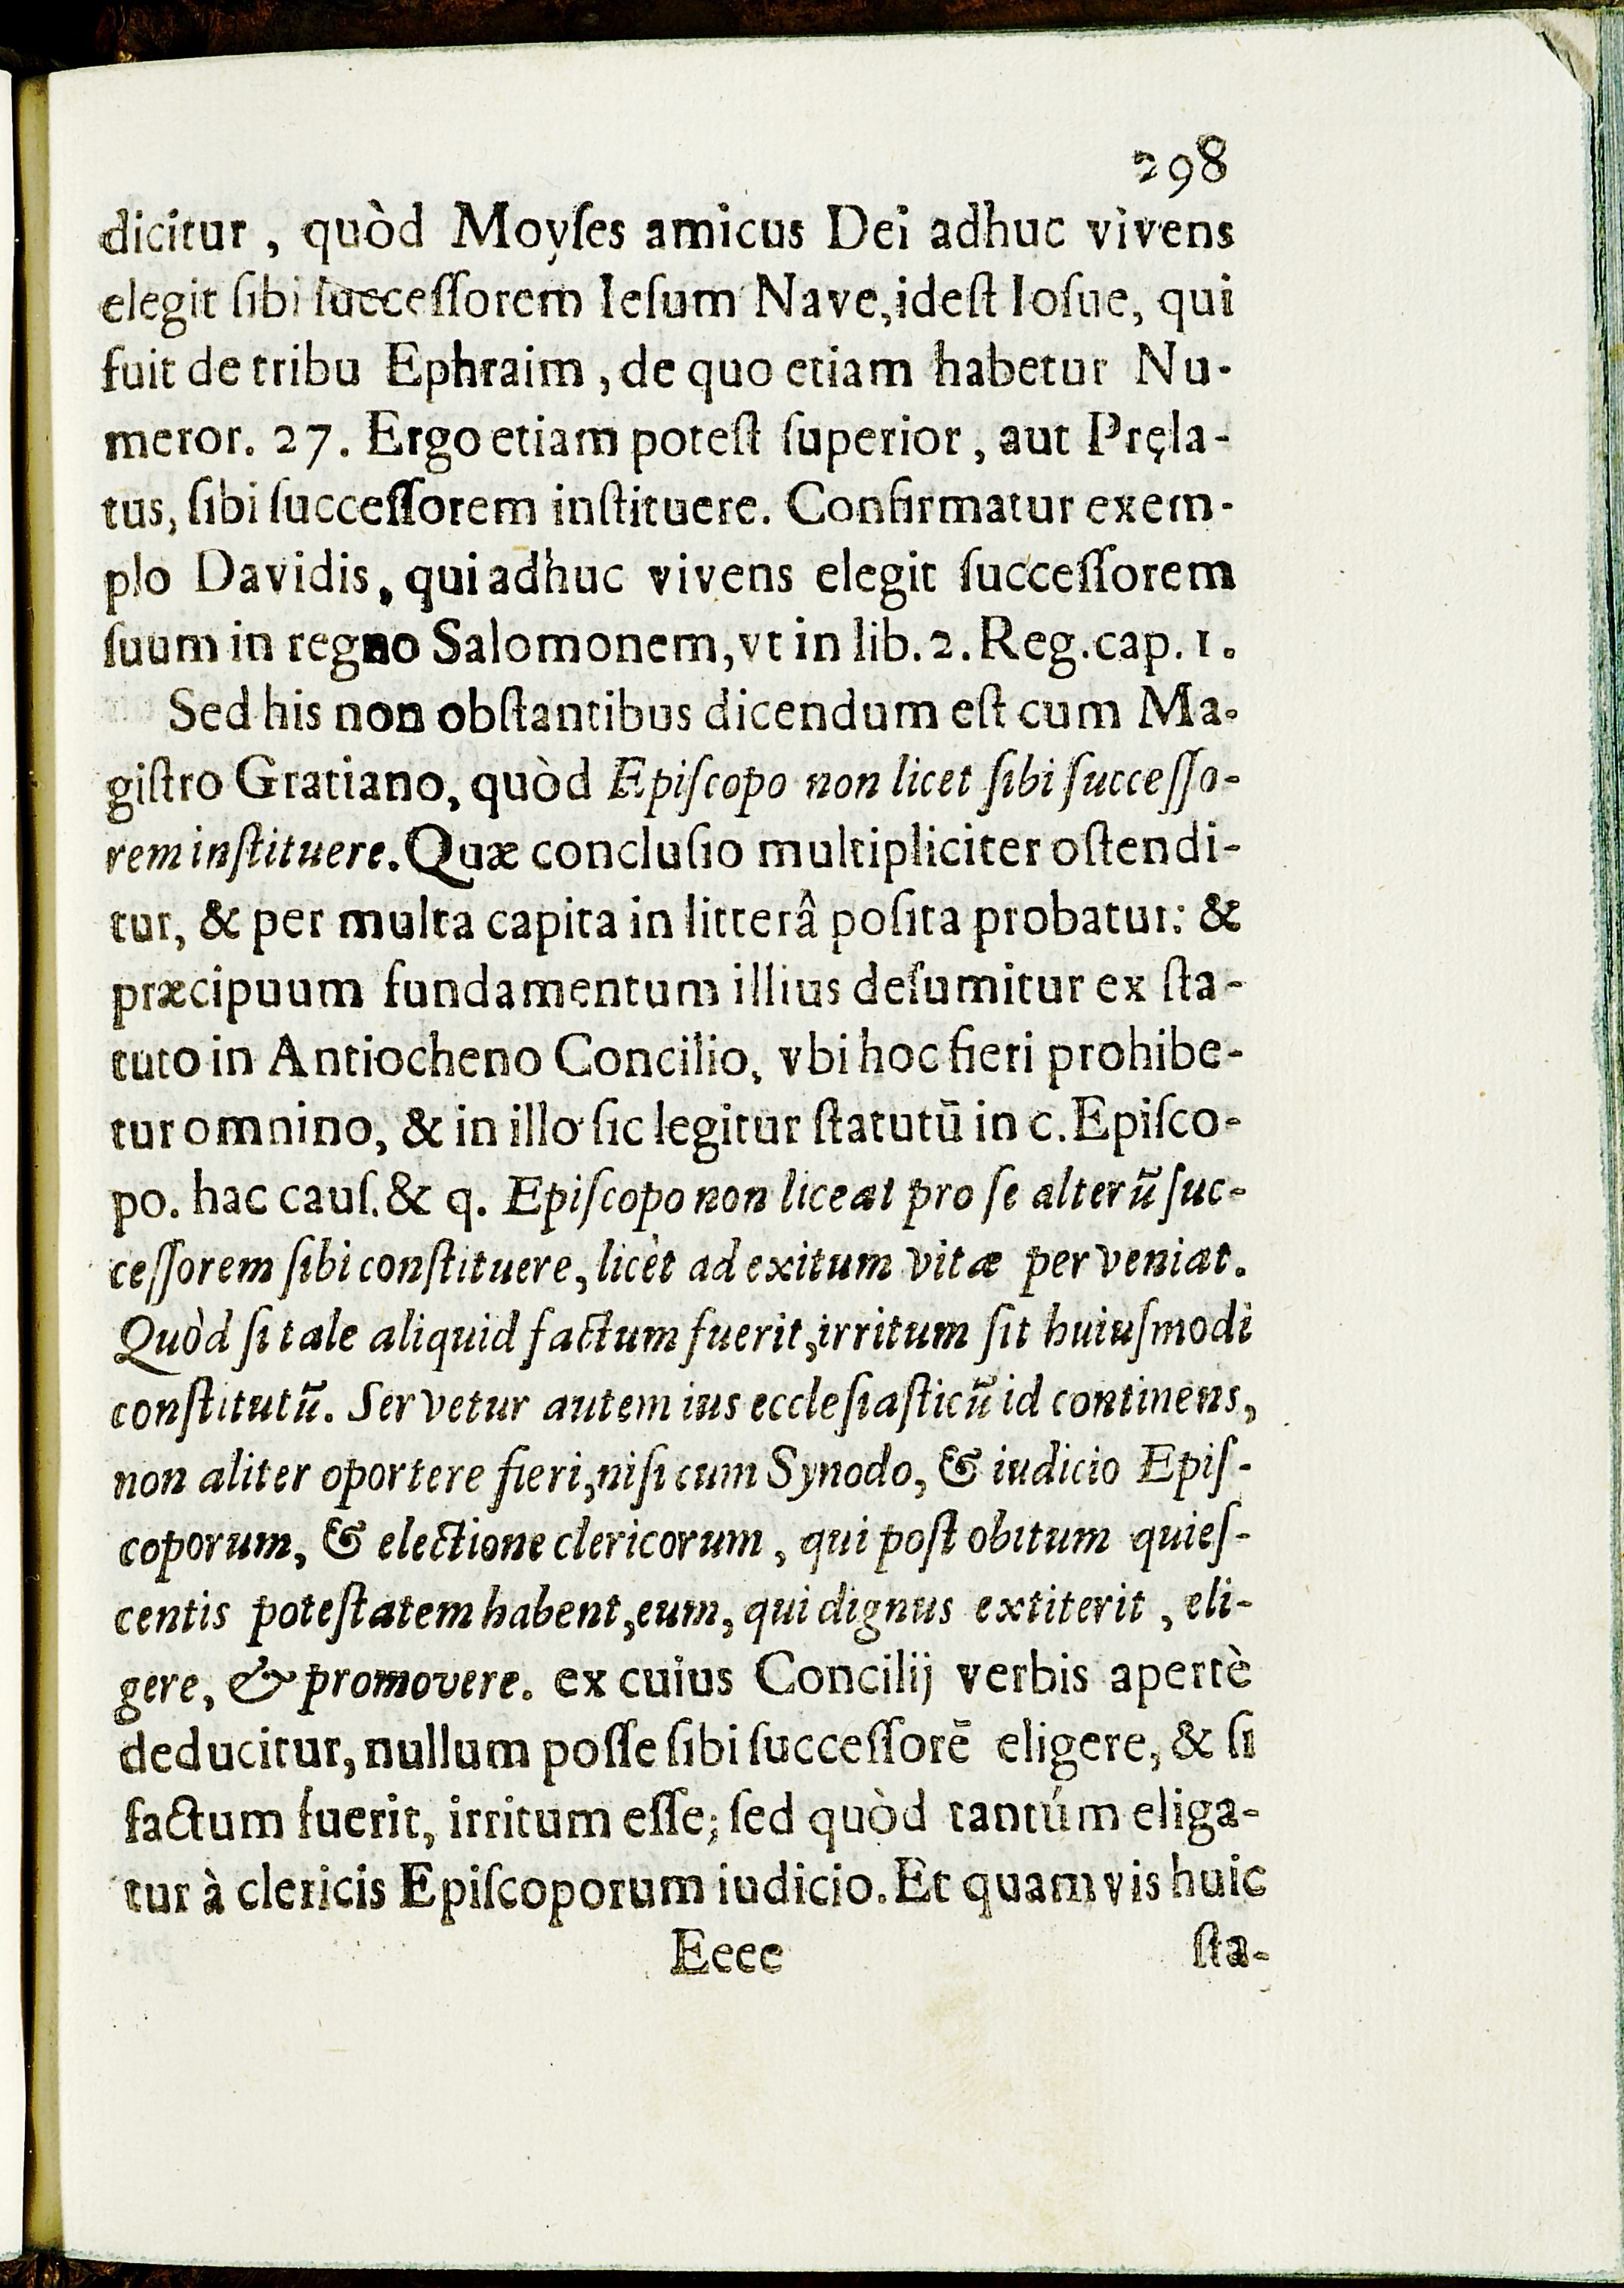 298
dicitur, quòd Moyſes amicus Dei adhuc vivens
elegit ſibi ſucceſſorem Ieſum Nave, ideſt Ioſue, qui
fuit de tribu Ephraim, de quo etiam habetur Nu-
meror. 27. Ergo etiam poteſt ſuperior, aut Pręla-
tus, ſibi ſucceſſorem inſtituere. Confirmatur exem-
plo Davidis, qui adhuc vivens elegit ſucceſſorem
ſuum in regno Salomonem, vt in lib. 2. Reg. cap. 1.
Sed his non obſtantibus dicendum eſt cum Ma-
giſtro Gratiano, quòd Epiſcopo non licet ſibi ſucceſſo-
rem inſtituere. Quæ concluſio multipliciter oſtendi-
tur, & per multa capita in litterâ poſita probatur: &
præcipuum fundamentum illius deſumitur ex ſta-
tuto in Antiocheno Concilio, vbi hoc fieri prohibe-
tur omnino, & in illo ſic legitur ſtatutū in c. Epiſco-
po. hac cauſ. & q. Epiſcopo non liceat pro ſe alterū ſuc-
ceſſorem ſibi conſtituere, licèt ad exitum vitæ perveniat.
Quòd ſi tale aliquid factum fuerit, irritum ſit huiuſmodi
conſtitutū. Servetur autem ius eccleſiaſticū id continens,
non aliter oportere fieri, niſi cum Synodo, & iudicio Epiſ-
coporum, & electione clericorum, qui poſt obitum quieſ-
centis poteſtatem habent, eum, qui dignus extiterit, eli-
gere, & promovere. ex cuius Concilij verbis apertè
deducitur, nullum poſſe ſibi ſucceſſorē eligere, & ſi
factum fuerit, irritum eſſe; ſed quòd tantúm eliga-
tur à clericis Epiſcoporum iudicio. Et quamvis huic
Eeee ſta-